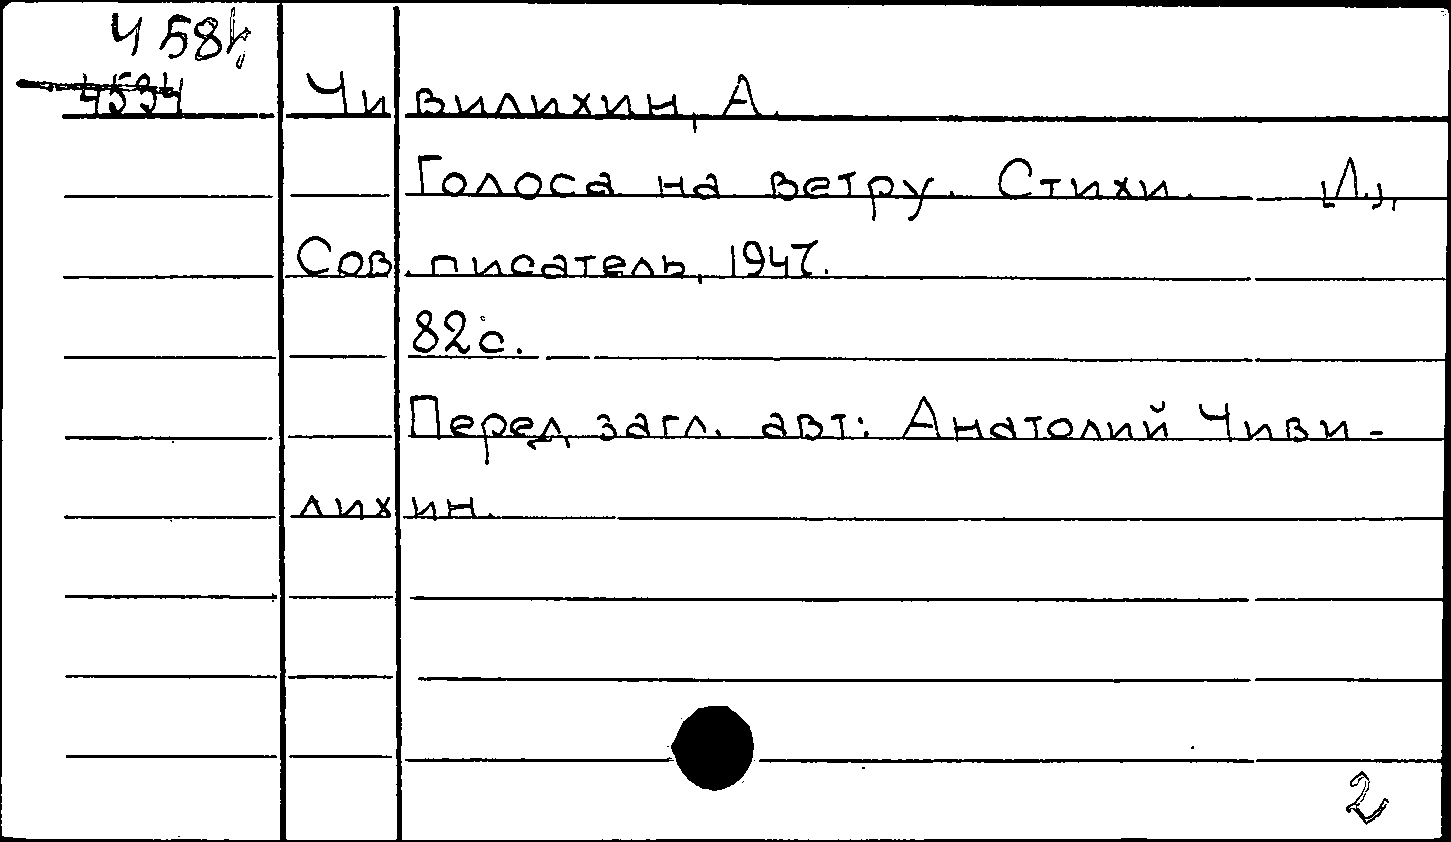 Ч 584
4534
Чивилихин, А.
Голоса на ветру. Стихи. [Л.],
Сов. писатель, 1947.
82 с.
Перед загл. авт: Анатолий Чиви-
лихин.
2